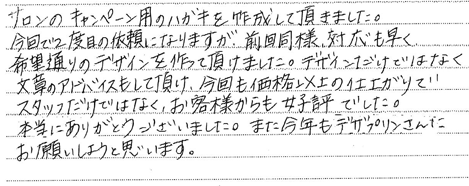 サロンのキャンペーン用のハガキを作成して頂きました。
今回で2度目の依頼になりますが、前回同様、対応も早く
希望通りのデザインを作って頂けました。デザインだけではなく
文章のアドバイスもして頂け、今回も価格以上の仕上がりで
スタッフだけではなく、お客様からも好評でした。
本当にありがとうございました。また今年もデザプリンさんに
お願いしようと思います。